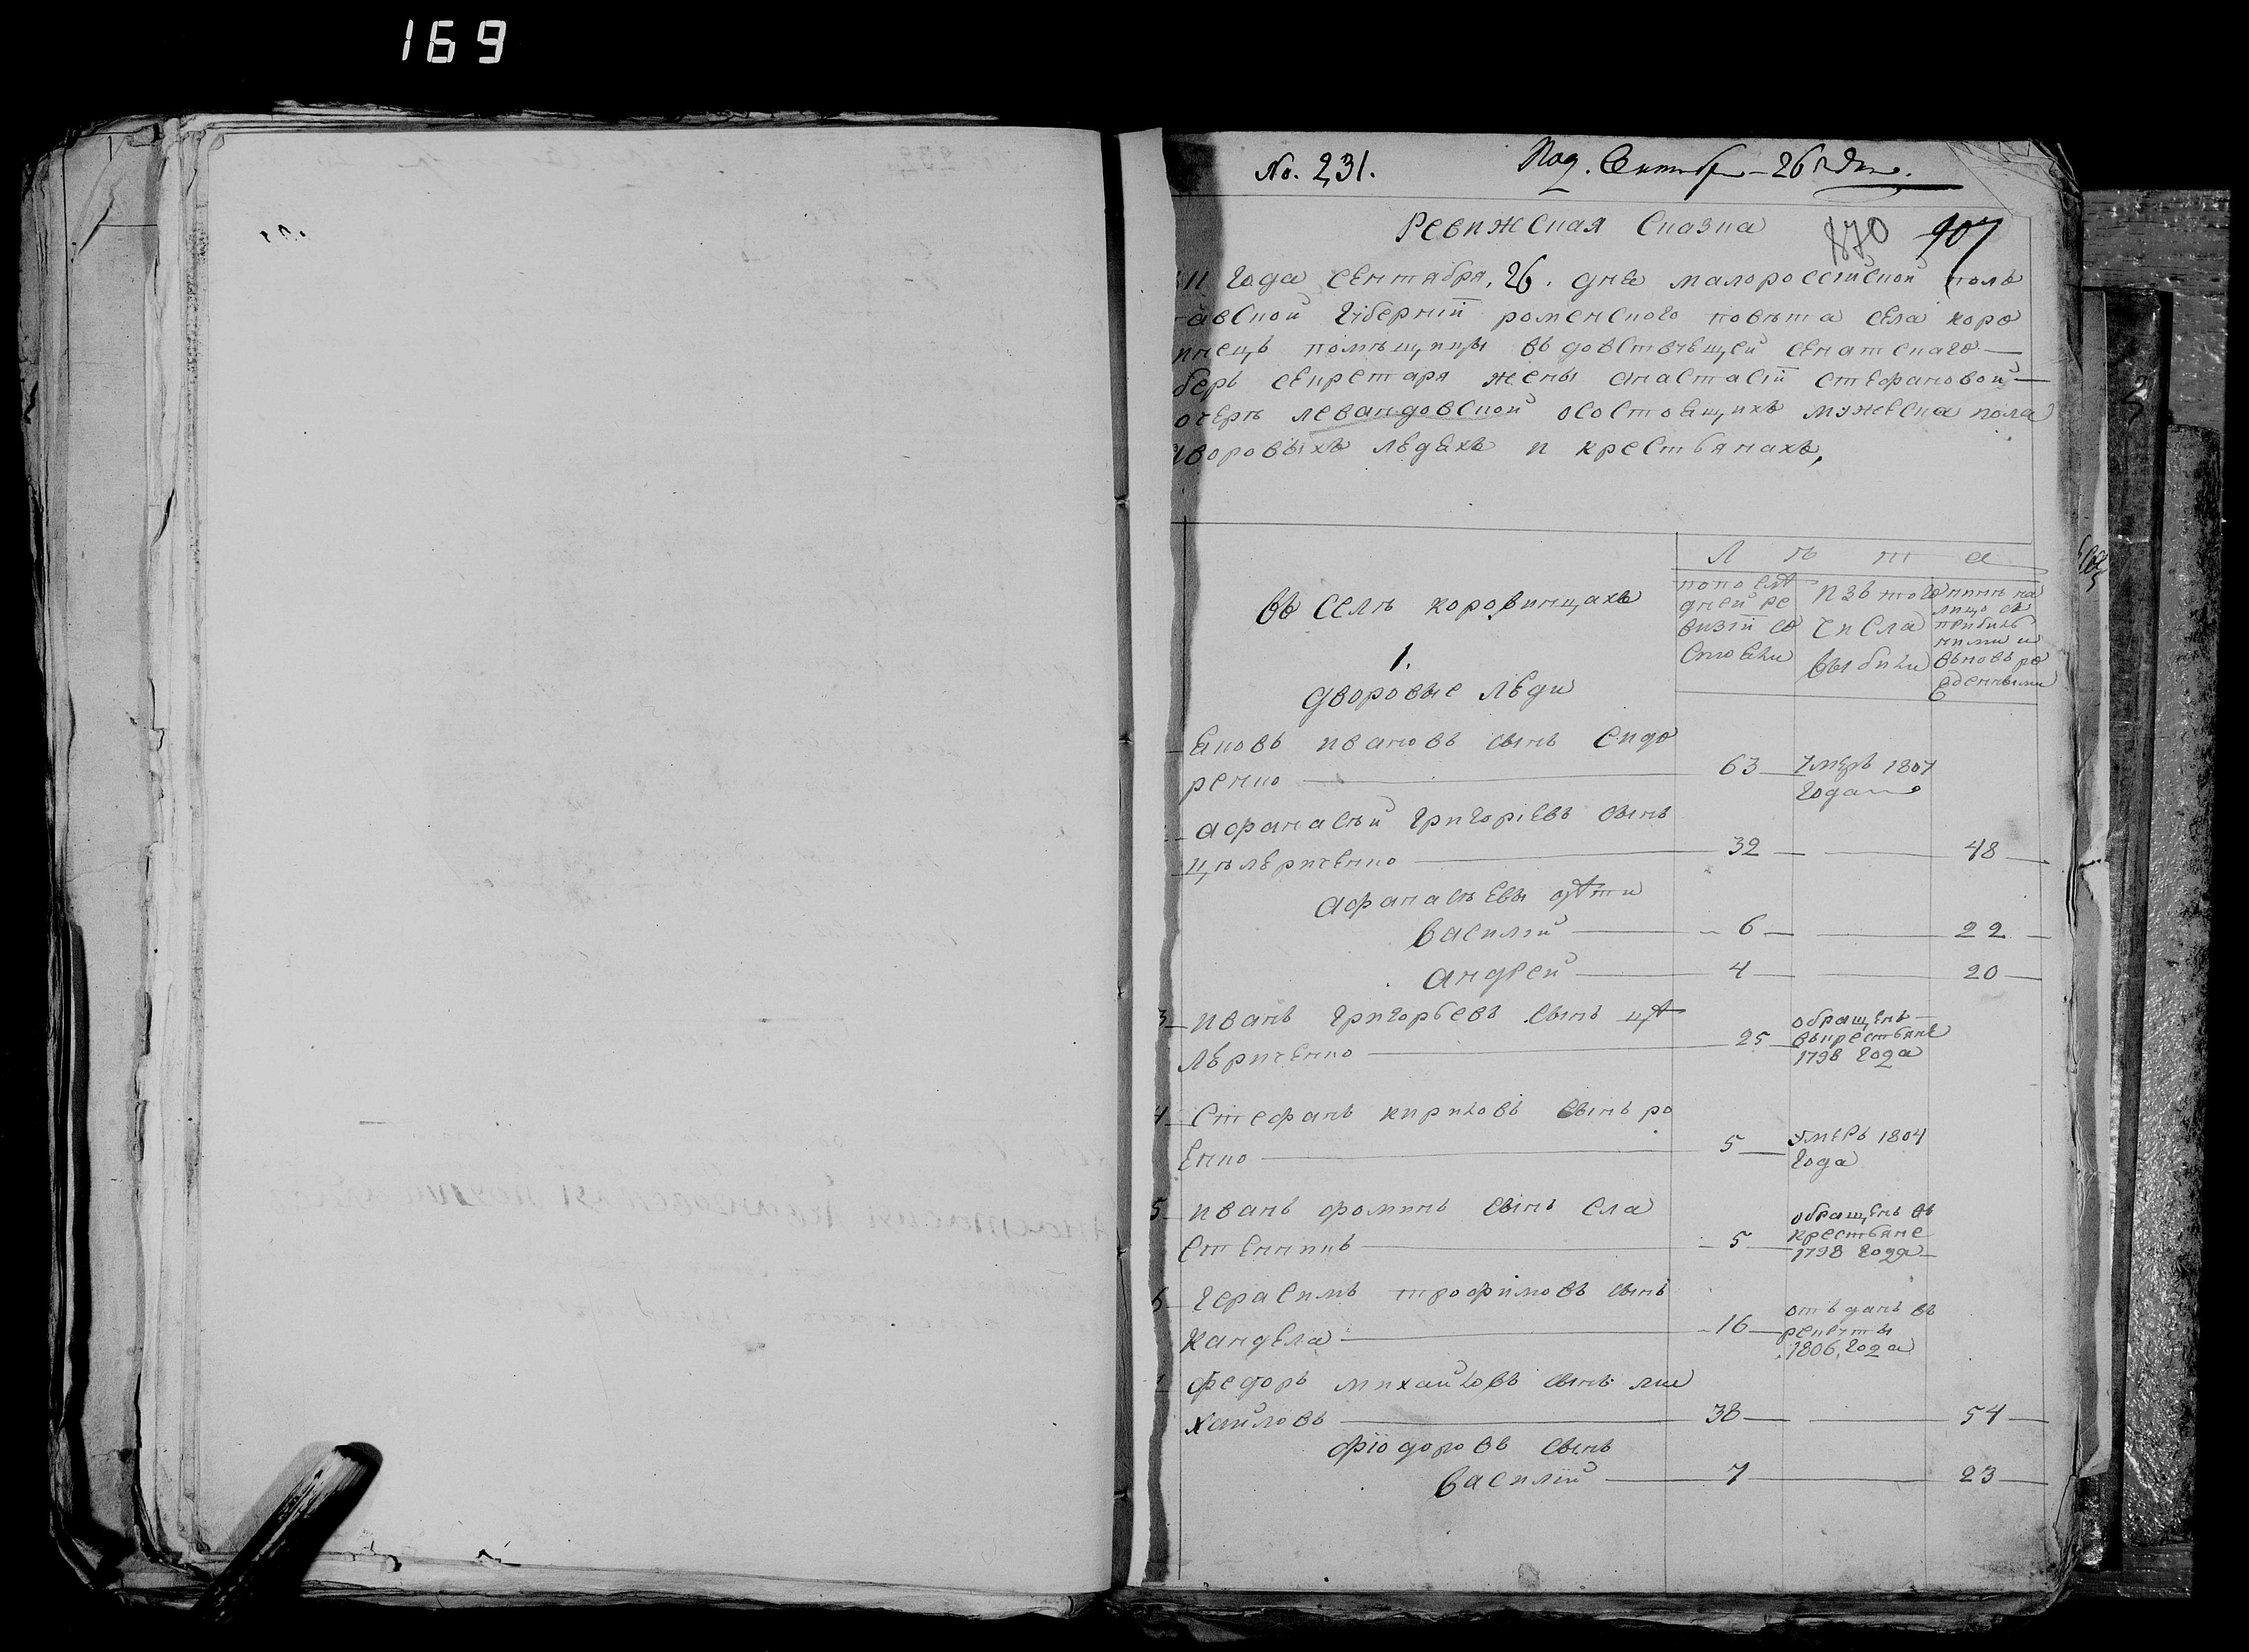 169
No. 231.
Под. Сентябр 26 дня.
Ревижская сказка
870 907
11 года сентября, 26. дня малоросстйской пол
авской губернии роменского повѣта села коро
инецъ помѣщицы вдовствующей сенатскаго
берь секретаря жены анастасіи стефановой
очерѣ левандовской осостоящихъ мужеска пола
дворовыхъ людяхъ и крестьянахъ,
Л ѣ т а
въ селѣ коровинцахъ
попослѣ
дней ре
визіи со
стояли
изъ того
числа
выбыли
нынѣ на
лицо съ
прибыл
ними и
вьновь ро
жденными
1.
дворовые люди
яковъ ивановъ сынъ сидо
ренко 63 умеръ 1807
года
афанасѣй григоріевъ сынъ
цѣлюриченко 32 48
афанасѣевы дѣти
василій 6 22
андрей 4 20
3 иванъ григорьевъ сынъ цѣ
люриченко 25 обращенъ
вкрестьяне
1798 года
4 стефанъ кириловъ сынъ ро
енко 5 умеръ 1804
года
5 иванъ фоминъ сынъ сла
стенникъ 5 обращенъ въ
крестьяне
1798 года
6 герасимъ трофимовъ сынъ
кандела 16 отъданъ въ
рекруты
1806, года
федоръ михайловъ сынъ ми
хайловъ 38 54
фіодоровъ сынъ
василій 7 23